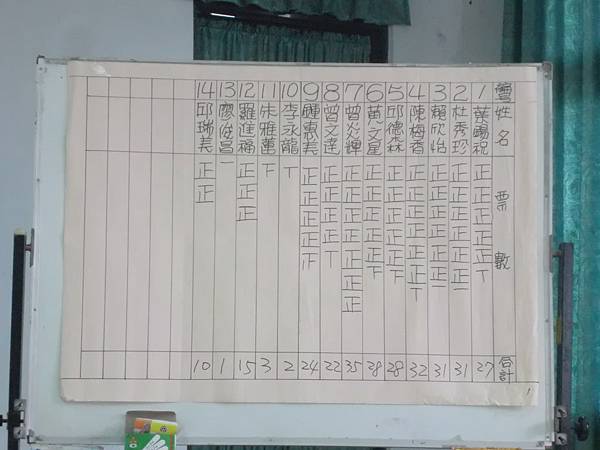 號 姓名 票數 合計
1 葉賜祝 正正正正正丅 27
2 杜秀珍 正正正正正正一 31
3 賴欣怡 正正正正正正一 31
4 陳梅香 正正正正正正丅 32
5 邱德森 正正正正正下 28
6 黃文星 正正正正正下 28
7 曾炎輝 正正正正正正正 35
8 曾文達 正正正正丅 22
9 鍾惠美 正正正正 24
10 李永龍 丅 2
11 朱雅蕙 下 3
12 羅進福 正正正 15
13 廖俊昌 一 1
14 邱瑞美 正正 10